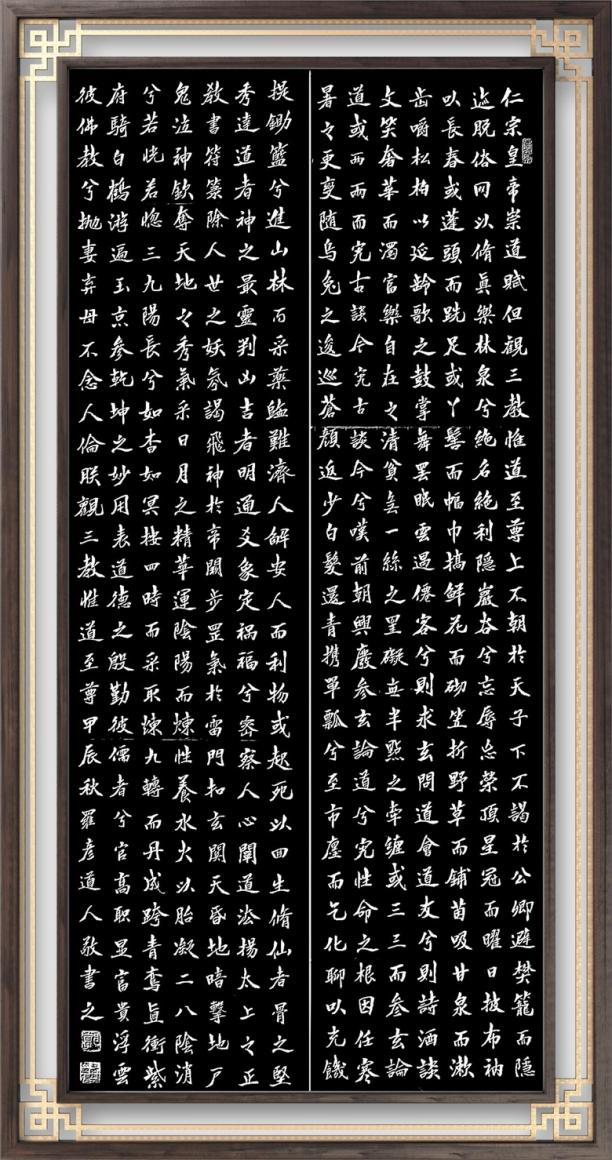 仁宗皇帝崇道賦但觀三教惟道至尊上不朝於天子下不謁於公卿避樊籠而隱
迹脫俗网以脩真樂林泉兮絶名絶利隱巖谷兮忘辱忘榮頂星冠而曜日披布衲
以長春或蓬頭而跣足或丫髻而幅巾摘鮮花而砌笠折野草而鋪茵吸甘泉而漱
齒嚼松柏以延齡歌之鼓掌舞罷眠雲過僊客兮則求玄問道會道友兮則詩酒談
文笑奢華而濁富樂自在之清貧無一絲之罣礙無半點之牽纏或三三而參玄論
道或兩兩而究古談今究古談今兮嘆前朝興廢參玄論道兮究性命之根因任寒
暑之更變隨烏兔之逡巡蒼顏返少白髮還青携單瓢兮至市廛而乞化聊以充饑
提鋤籃兮進山林而采藥臨難濟人解安人而利物或起死以回生脩仙者骨之堅
秀達道者神之最靈判凶吉者明通爻象定禍福兮密察人心闡道法揚太上之正
教書符篆除人世之妖氛謁飛神於帝闕步罡氣於雷門扣玄關天昏地暗擊地户
鬼泣神欽奪天地之秀氣采日月之精華運陰陽而煉性養水火以胎凝二八陰消
兮若恍若惚三九陽長兮如杳如冥按四時而采取煉九轉而丹成跨青鸞直衝紫
府騎白鶴游遍玉京參乾坤之妙用表道德之殷勤彼儒者兮官高職显富貴浮雲
彼佛教兮抛妻弃母不念人倫朕觀三教惟道至尊甲辰秋羅彥道人敬書之